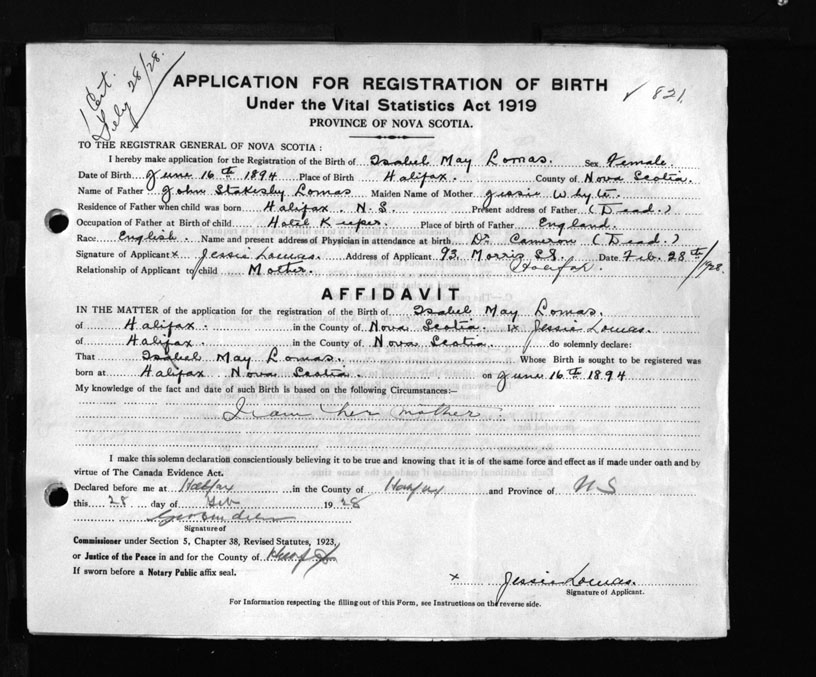 1 Cert.
July 28/28.
APPLICATION FOR REGISTRATION OF BIRTH
✓ 821.
Under the Vital Statistics Act 1919
PROVINCE OF NOVA SCOTIA.
TO THE REGISTRAR GENERAL OF NOVA SCOTIA:
I hereby make application for the Registration of the Birth of Isabel May Lomas. Sex Female.
Date of Birth June 16th 1894 Place of Birth Halifax. County of Nova Scotia.
Name of Father John Stokesby Lomas Maiden Name of Mother Jessie Whyte.
Residence of Father when child was born Halifax. N.S. Present address of Father (Dead.)
Occupation of Father at Birth of child Hotel Keeper. Place of birth of Father England.
Race English. Name and present address of Physician in attendance at birth Dr. Cameron (Dead.)
Signature of Applicant x Jessie Lomas. Address of Applicant 93 Morris St. Halifax. Date Feb. 28th/1928.
Relationship of Applicant to child Mother.
AFFIDAVIT
IN THE MATTER of the application for the registration of the Birth of Isabel May Lomas.
of Halifax. in the County of Nova Scotia. I x Jessie Lomas.
of Halifax. in the County of Nova Scotia. do solemnly declare:
That Isabel May Lomas. Whose Birth is sought to be registered was
born at Halifax Nova Scotia. on June 16th 1894
My knowledge of the fact and date of such Birth is based on the following Circumstances:—
I am her mother
I make this solemn declaration conscientiously believing it to be true and knowing that it is of the same force and effect as if made under oath and by
virtue of The Canada Evidence Act.
Declared before me at Halifax in the County of Halifax and Province of N S
this 28 day of Feb 1928
Signature of
Commissioner under Section 5, Chapter 38, Revised Statutes, 1923,
or Justice of the Peace in and for the County of
If sworn before a Notary Public affix seal.
x Jessie Lomas.
Signature of Applicant.
For Information respecting the filling out of this Form, see Instructions on the reverse side.